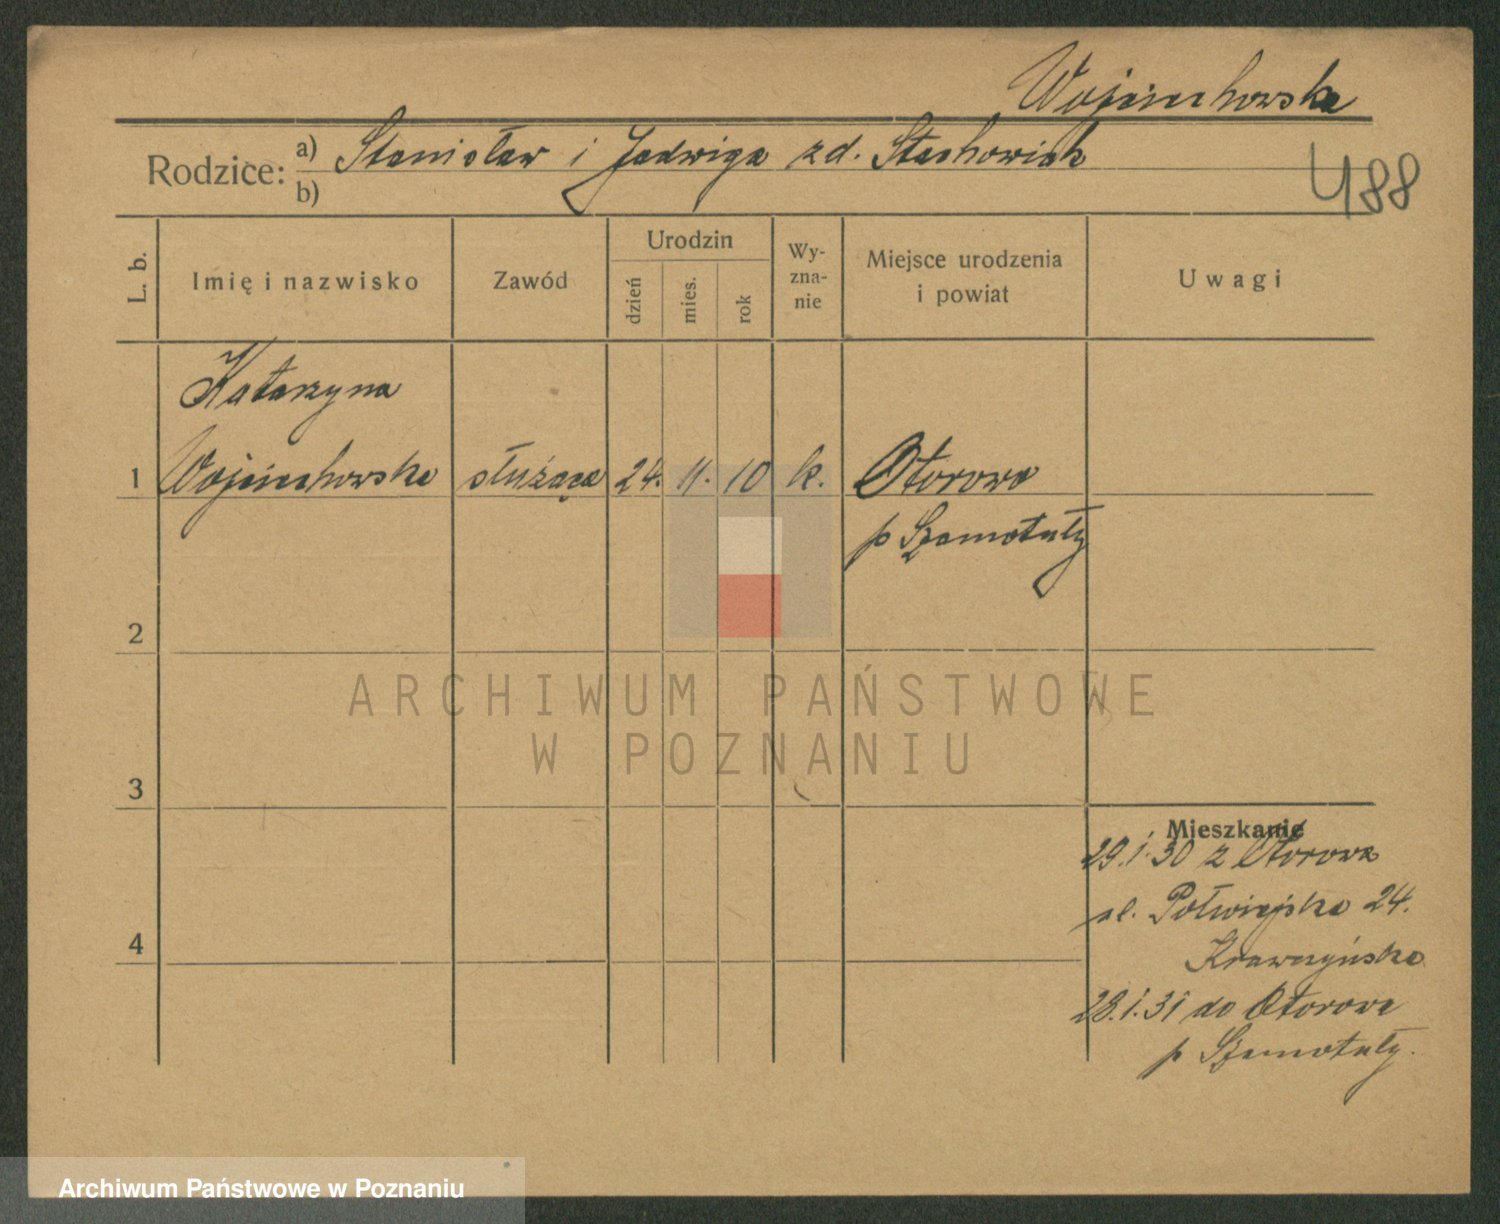 Wojciechowska
Rodzice: a) Stanisław i Jadwiga zd. Stachowiak
b)
488
L. b.
Imię i nazwisko
Zawód
Urodzin
dzień
mies.
rok
Wy-
zna-
nie
Miejsce urodzenia
i powiat
Uwagi
Katarzyna
1 Wojciechowska służąca 24. 11. 10 k. Otorowo
p Szamotuły
2
3
4
Mieszkanie
29.1.30 z Otorowa
ul. Półwiejska 24.
Krawczyńska
28.1.31 do Otorowa
p Szamotuły.
ARCHIWUM PAŃSTWOWE
W POZNANIU
Archiwum Państwowe w Poznaniu